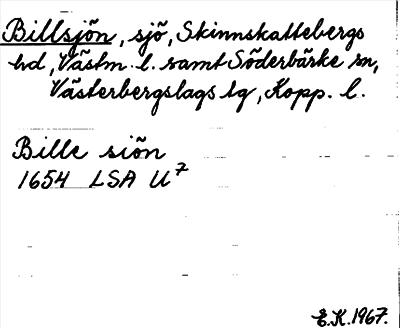 Billsjön, sjö, Skinnskattebergs
hd, Västm. l. samt Söderbärke sn,
Västerbergslags tg, Kopp. l.
Bille siön
1654 LSA U⁷
E.K. 1967.